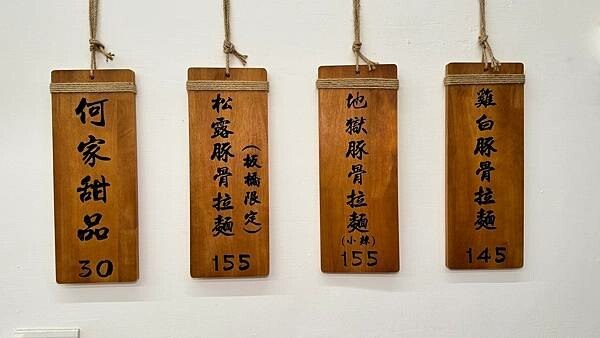 何家甜品
30
松露豚骨拉麵
(板橋限定)
155
地獄豚骨拉麵
(小辣)
155
雞白豚骨拉麵
145